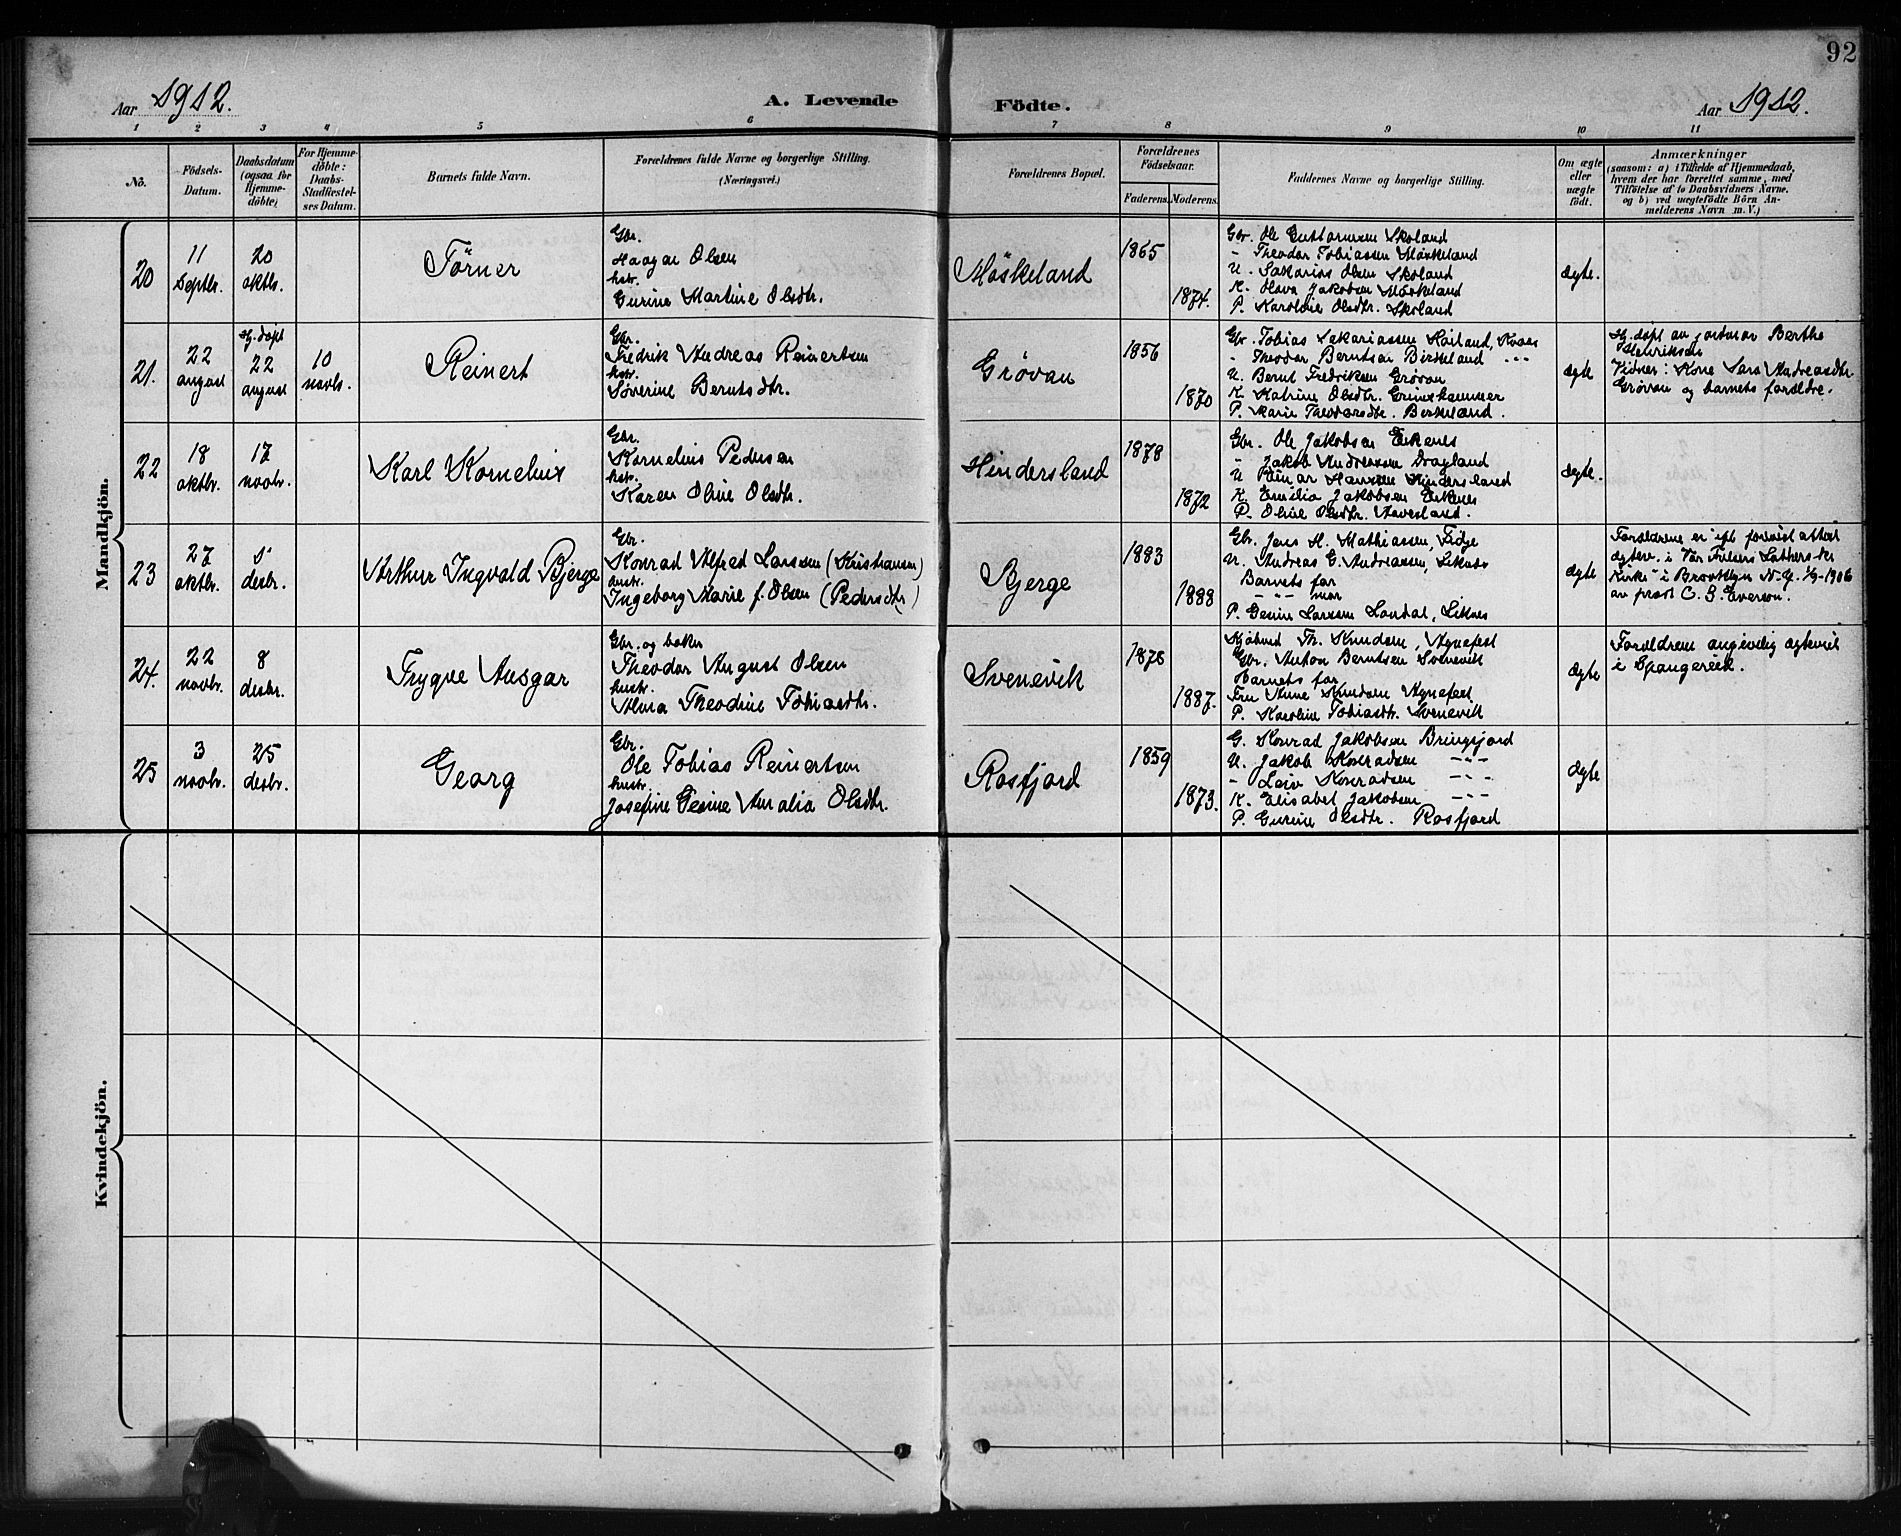 92
Aar 1912.
A. Levende
Födte.
Aar 1912.
1 2 3 4 5 6 7 8 9 10 11
No.
Födsels-
Datum.
Daabsdatum
(ogsaa for
Hjemme-
döbte)
For Hjemme-
döbte:
Daabs-
Stadfæstel-
ses Datum.
Barnets fulde Navn.
Forældrenes fulde Navne og borgerlige Stilling.
(Næringsvei.)
Forældrenes Bopæl.
Forældrenes
Födselsaar.
Faderens.
Moderens.
Faddernes Navne og borgerlige Stilling.
Om ægte
eller
uægte
födt.
Anmærkninger
(saasom: a) i Tilfælde af Hjemmedaab,
hvem der har forrettet samme, med
Tilföielse af to Daabsvidners Navne,
og b) ved uægtefödte Börn An-
melderens Navn m. V.)
Mandkjön.
20
11
Septbr.
20
oktbr.
Törner
Gbr.
Haagar Olsen
hstr.
Gurine Martine Olsdtr.
Möskeland
1865
1874.
Gbr. Ole Guttormsen Skoland
- Theodor Tobiassen Möskeland
U. Sakarias Olsen Skoland
K. Olava Jakobsen Möskeland
P. Karoline Olsdtr. Skoland
ægte.
21.
22
august
Hj. döpt
22
august
10
novbr.
Reinert
Gbr.
Fredrik Andreas Reinertsen
hstr.
Söverine Berntsdtr.
Grövan
1856
1870
Gbr. Tobias Sakariassen Höiland, Kvaas
- Theodor Berntsen Birkeland
U. Bernt Fredriksen Grövan
K. Katrine Olsdtr.
P. Marie Theodorsdtr. Birkeland.
ægte
Hj. döpt av jordmor Berthe
Henriksen
Vidner: Kone Sara Andreasdtr.
Grövan og barnets forældre.
22
18
oktbr.
17
novbr.
Karl Kornelius
Gbr.
Kornelius Pedersen
hstr.
Karen Oline Olsdtr.
Hindersland
1878
1872
Gbr. Ole Jakobsen Eikenes
- Jakob Andreassen Dragland
U. Einar Hansen Hindersland
K. Emilie Jakobsen Eikenes
P. Oline Olsdtr. Aavesland.
ægte.
23
27
oktbr.
5
desbr.
Arthur Ingvald Bjerge
Gbr.
Konrad Alfred Larssen (Kristiansen)
hustr.
Ingeborg Marie f. Olsen (Pedersdtr)
Bjerge
1883
1888
Gbr. Jens H. Mathiassen,
U. Andreas G. Andreassen, Liknes
Barnets far
-"- mor
P. Gesine Larssen Londal, Liknes
ægte
Forældrene er ifl. forevist attest
egtev. i "Vor Frelsers Lutherske
Kirke" i Brooklyn N.Y. 1/9-1906
av prest C. S. Everson.
24.
22
novbr.
8
desbr.
Trygve Ansgar
Gbr. og baker
Theodor August Olsen
hustr.
Alma Theodine Tobiasdtr.
Svenevik
1878
1887.
Kjöbmd Th. Knudsen, Agnefest
Gbr. Anton Berntsen Svenevik
Barnets far
Fru Anne Knudsen Agnefest
P. Karoline Tobiasdtr. Svenevik
ægte
Forældrene angivelig egteviet
i Spangereid.
25
3
novbr.
25
desbr.
Georg
Gbr.
Ole Tobias Reinertsen
hustr.
Josefine Gesine Amalia Olsdtr.
Rosfjord
1859
1873.
G. Konrad Jakobsen Bringsjord
U. Jakob Konradsen -"-
- Leiv Konradsen -"-
K. Elisabet Jakobsen -"-
P. Gurine Olsdtr. Rosfjord
ægte
Kvindekjön.